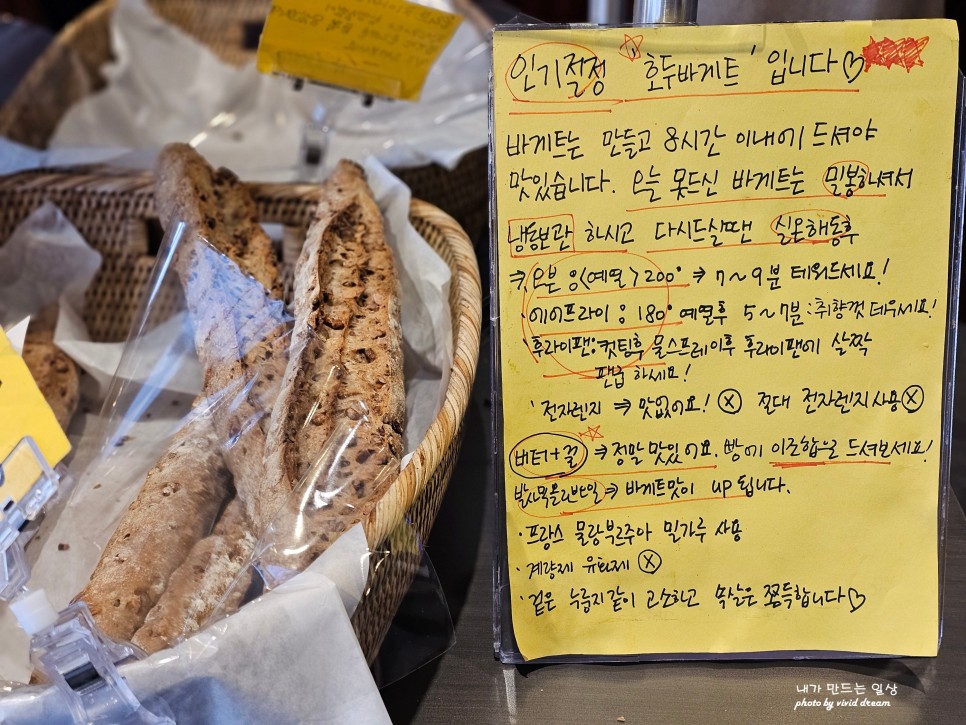 인기절정 '호두바게트' 입니다♡
바게트는 만들고 8시간 이내에 드셔야
맛있습니다. 오늘 못드신 바게트는 밀봉하셔서
냉동보관 하시고 다시드실땐 실온해동후
⇒ 오븐은 <예열> 200° ⇒ 7~9분 데워드세요!
·에어프라이 : 180° 예열후 5~7분 : 취향껏 데우세요!
·후라이팬 : 컷팅후 물스프레이후 후라이팬에 살짝
팬굽 하세요!
·전자렌지 ⇒ 맛없어요! ⓧ 절대 전자렌지사용 ⓧ
버터+꿀 ⇒ 정말 맛있어요. 빵에 이조합으로 드셔보세요!
⇒ 바게트맛이 up 됩니다.
·프랑스 물랑부르주아 밀가루 사용
·계량제 유화제 ⓧ
·겉은 누룽지같이 고소하고 속살은 쫀득합니다♡
내가 만드는 일상
photo by vivid dream